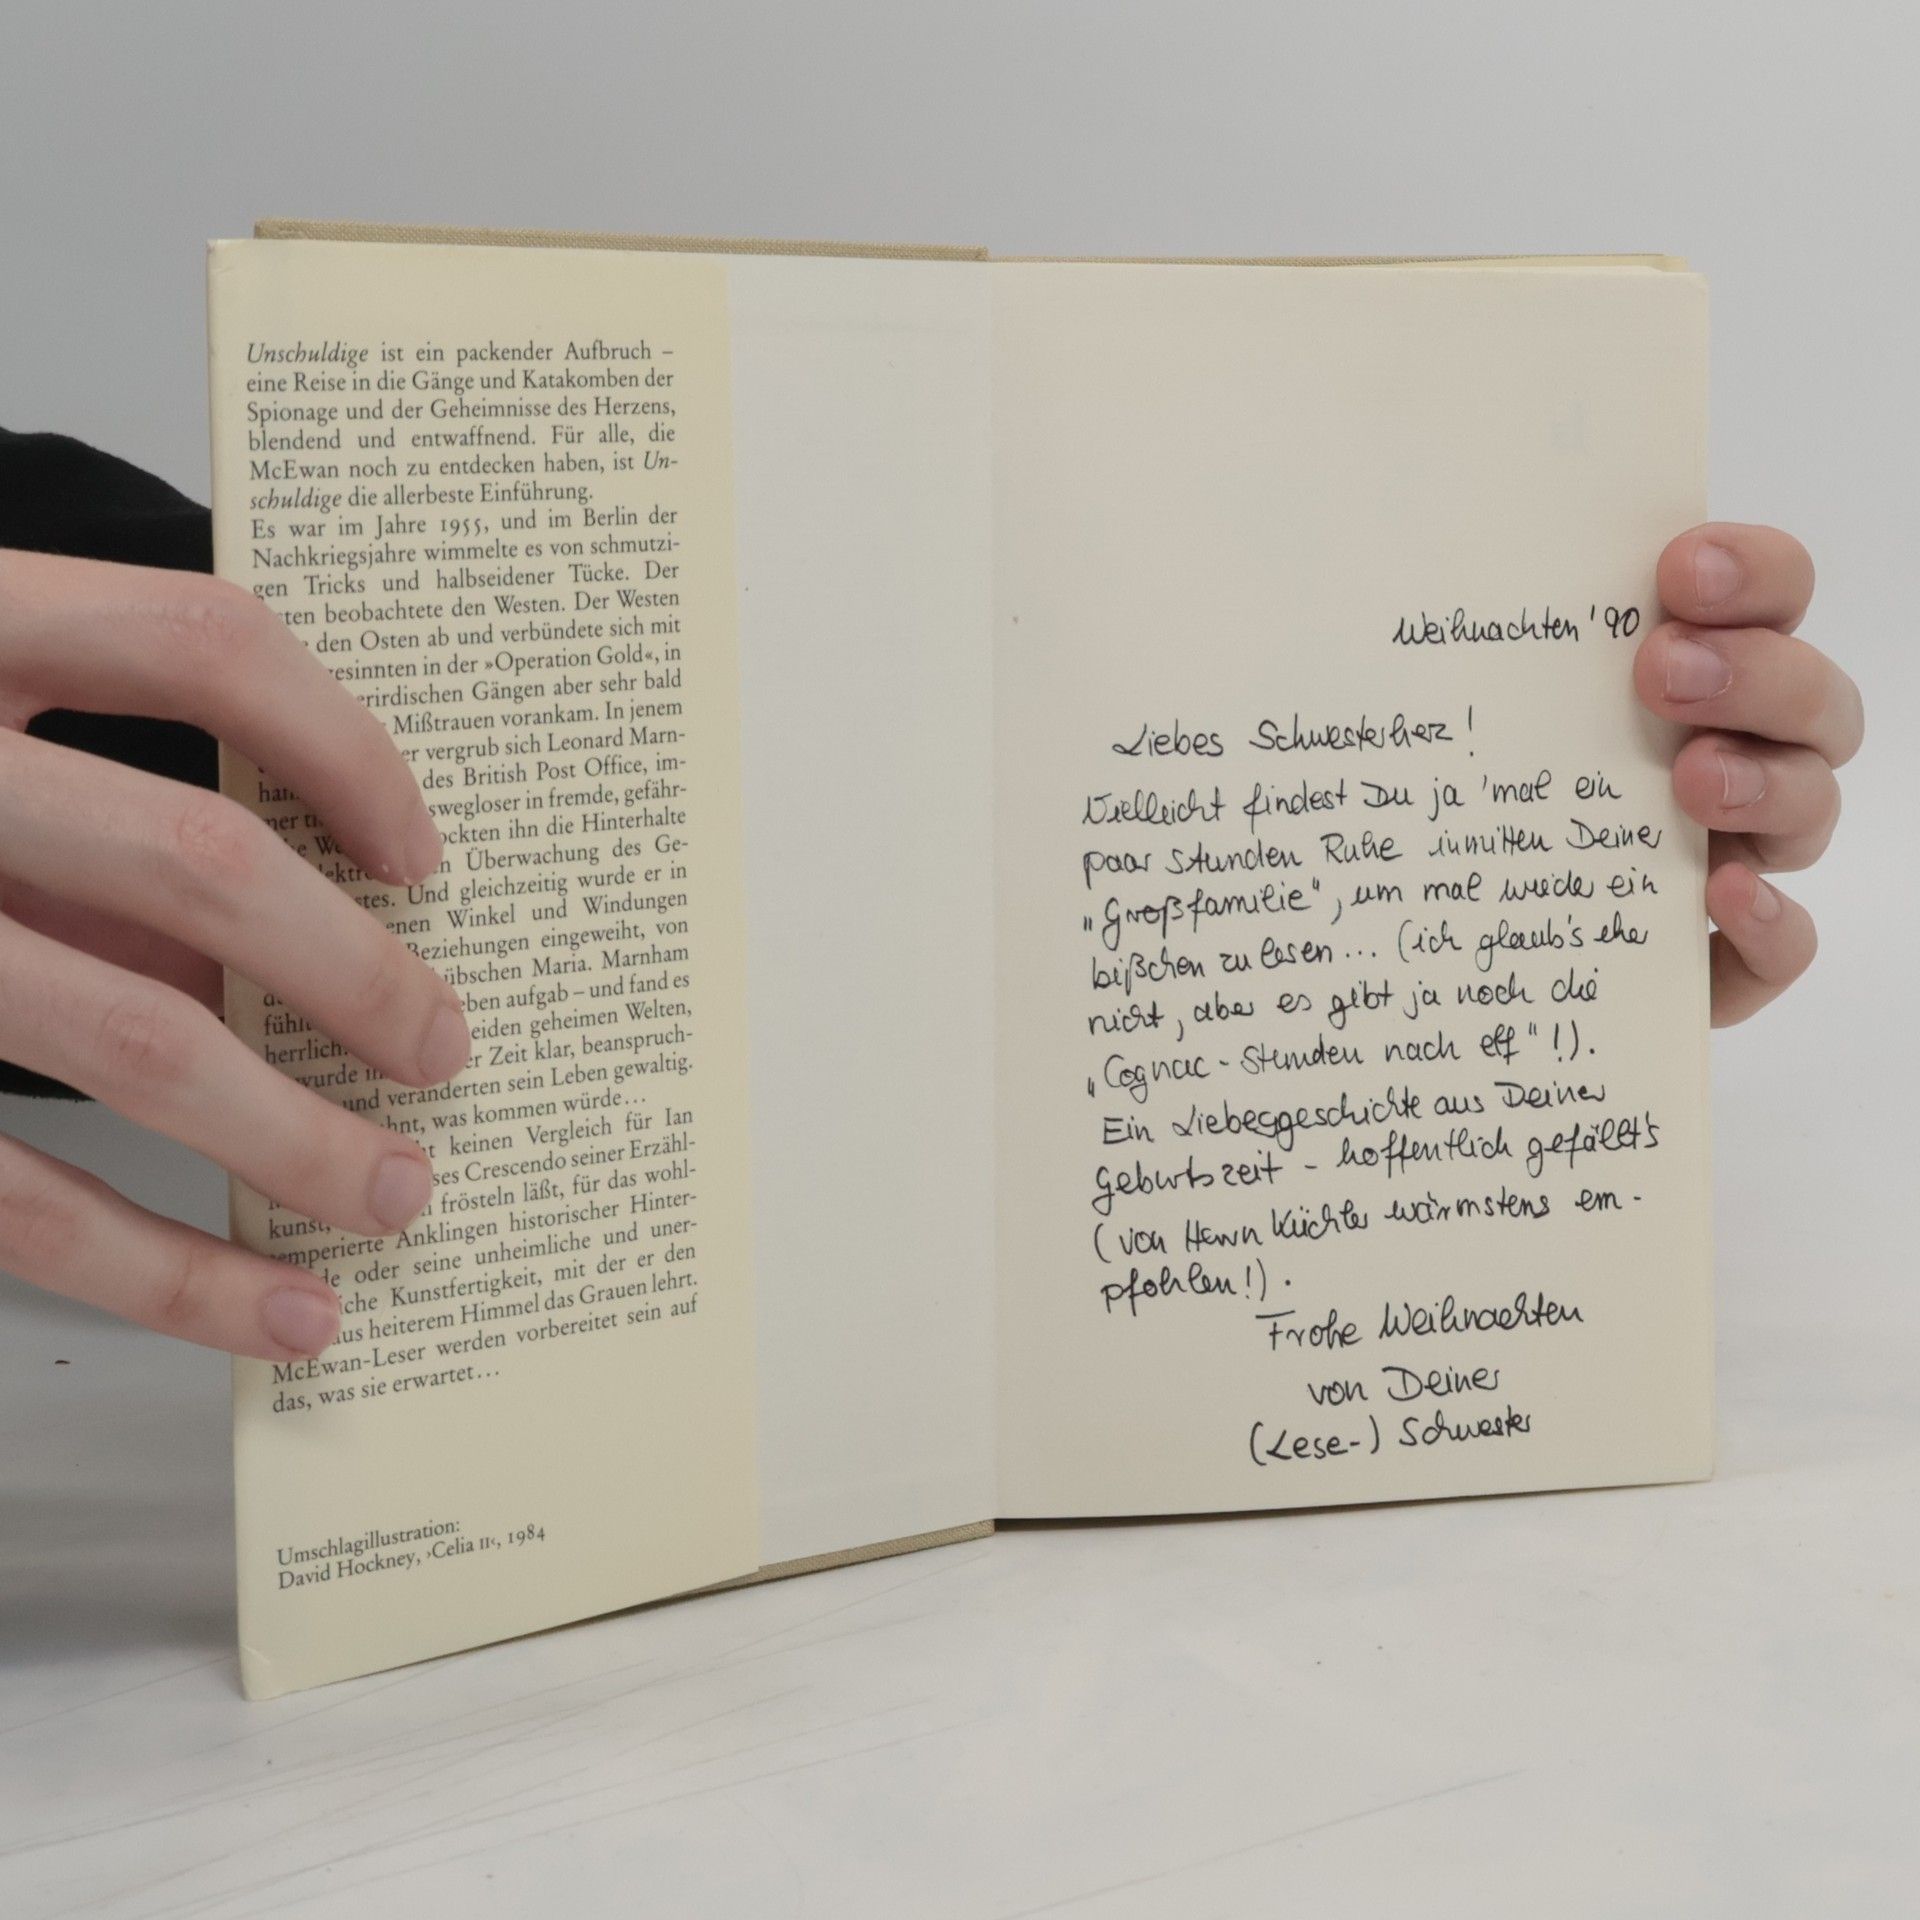 Unschuldige ist ein packender Aufbruch –
eine Reise in die Gänge und Katakomben der
Spionage und der Geheimnisse des Herzens,
blendend und entwaffnend. Für alle, die
McEwan noch zu entdecken haben, ist Un-
schuldige die allerbeste Einführung.
Es war im Jahre 1955, und im Berlin der
Nachkriegsjahre wimmelte es von schmutzi-
gen Tricks und halbseidener Tücke. Der
beobachtete den Westen. Der Westen
den Osten ab und verbündete sich mit
in der »Operation Gold«, in
Gängen aber sehr bald
Mißtrauen vorankam. In jenem
vergrub sich Leonard Marn-
des British Post Office, im-
in fremde, gefähr-
ihn die Hinterhalte
Überwachung des Ge-
Und gleichzeitig wurde er in
Winkel und Windungen
Beziehungen eingeweiht, von
Maria. Marnham
aufgab – und fand es
geheimen Welten,
herrlich. Zeit klar, beanspruch-
und veränderten sein Leben gewaltig.
was kommen würde…
keinen Vergleich für Ian
Crescendo seiner Erzähl-
frösteln läßt, für das wohl-
kunst, Anklingen historischer Hinter-
temperierte
oder seine unheimliche und uner-
Kunstfertigkeit, mit der er den
aus heiterem Himmel das Grauen lehrt.
McEwan-Leser werden vorbereitet sein auf
das, was sie erwartet…
Umschlagillustration:
David Hockney, ›Celia II‹, 1984
Weihnachten '90
Liebes Schwesterherz!
Vielleicht findest Du ja 'mal ein
paar Stunden Ruhe inmitten Deiner
„Großfamilie", um mal wieder ein
bißchen zu lesen... (ich glaub's eher
nicht, aber es gibt ja noch die
„Cognac-Stunden nach elf"!).
Ein Liebesgeschichte aus Deiner
Geburtszeit - hoffentlich gefällt's
(von Herrn Küchler wärmstens em-
pfohlen!).
Frohe Weihnachten
von Deiner
(Lese-) Schwester